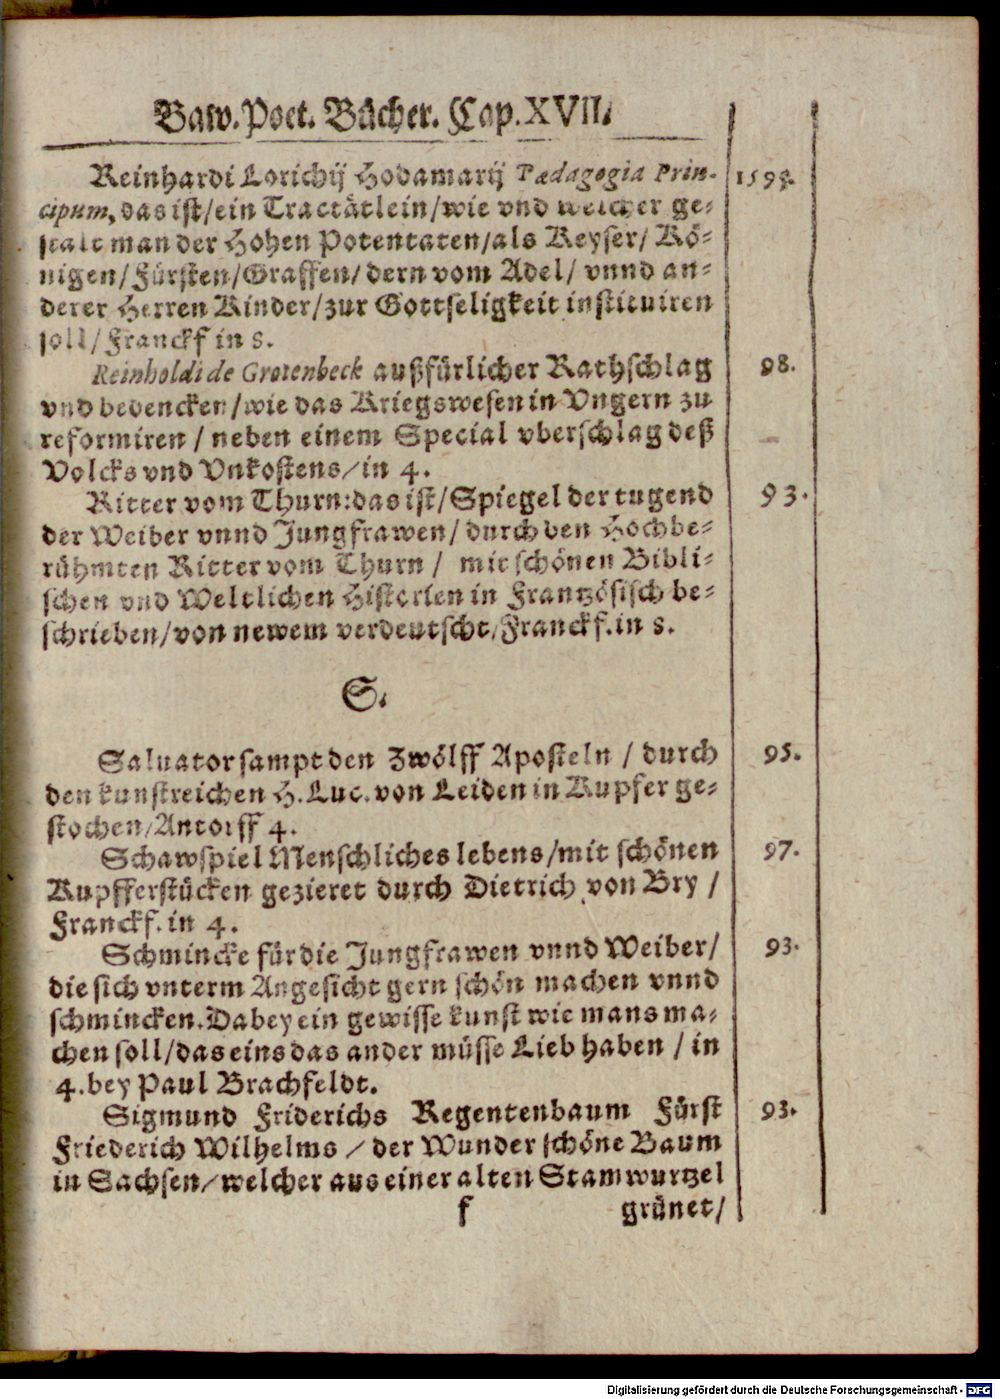 Baw. Poet. Bücher. Cap. XVII.
Reinhardi Lorichij Hodamarij Pædagogia Prin- 1595.
cipum, das ist/ein Tractätlein/wie vnd welcher ge-
stalt man der Hohen Potentaten/als Keyser/ Kö-
nigen/Fürsten/Graffen/dern vom Adel/ vnnd an-
derer Herren Kinder/zur Gottseligkeit instituiren
soll/Franckf in 8.
Reinholdi de Grotenbeck außfürlicher Rathschlag 98.
vnd bedencken/wie das Kriegswesen in Vngern zu
reformiren / neben einem Special vberschlag deß
Volcks vnd Vnkostens/in 4.
Ritter vom Thurn: das ist/Spiegel der tugend 93.
der Weiber vnnd Jungfrawen/ durch den Hochbe-
rühmten Ritter vom Thurn / mit schönen Bibli-
schen vnd Weltlichen Historien in Frantzösisch be-
schrieben/von newem verdeutscht/Franckf. in 8.
S.
Saluator sampt den Zwölff Aposteln / durch 95.
den kunstreichen H. Luc. von Leiden in Kupfer ge-
stochen/Antorff 4.
Schawspiel Menschliches lebens/mit schönen 97.
Kupfferstücken gezieret durch Dietrich von Bry /
Franckf. in 4.
Schmincke für die Jungfrawen vnnd Weiber/ 93.
die sich vnterm Angesicht gern schön machen vnnd
schmincken. Dabey ein gewisse kunst wie mans ma-
chen soll/das eins das ander müsse Lieb haben / in
4. bey Paul Brachfeldt.
Sigmund Friderichs Regentenbaum Fürst 93.
Friederich Wilhelms / der Wunder schöne Baum
in Sachsen/welcher aus einer alten Stamwurtzel
f grünet/
Digitalisierung gefördert durch die Deutsche Forschungsgemeinschaft - DFG